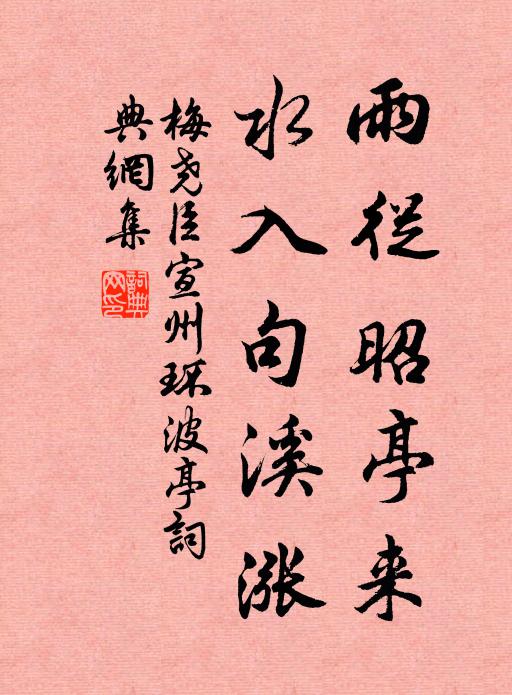 雨從昭亭来
水入句溪涨
梅尧臣宣州环波亭詞
典網集
詞典网印